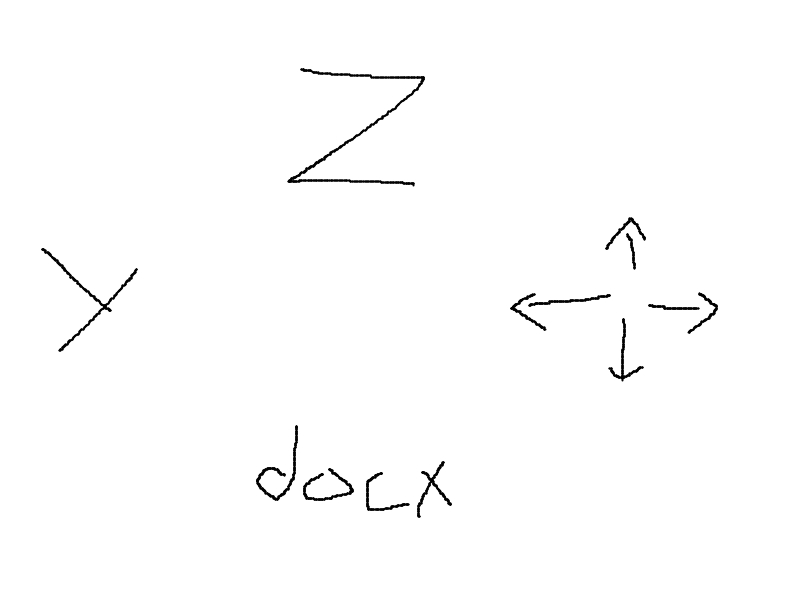 Z
y
docx